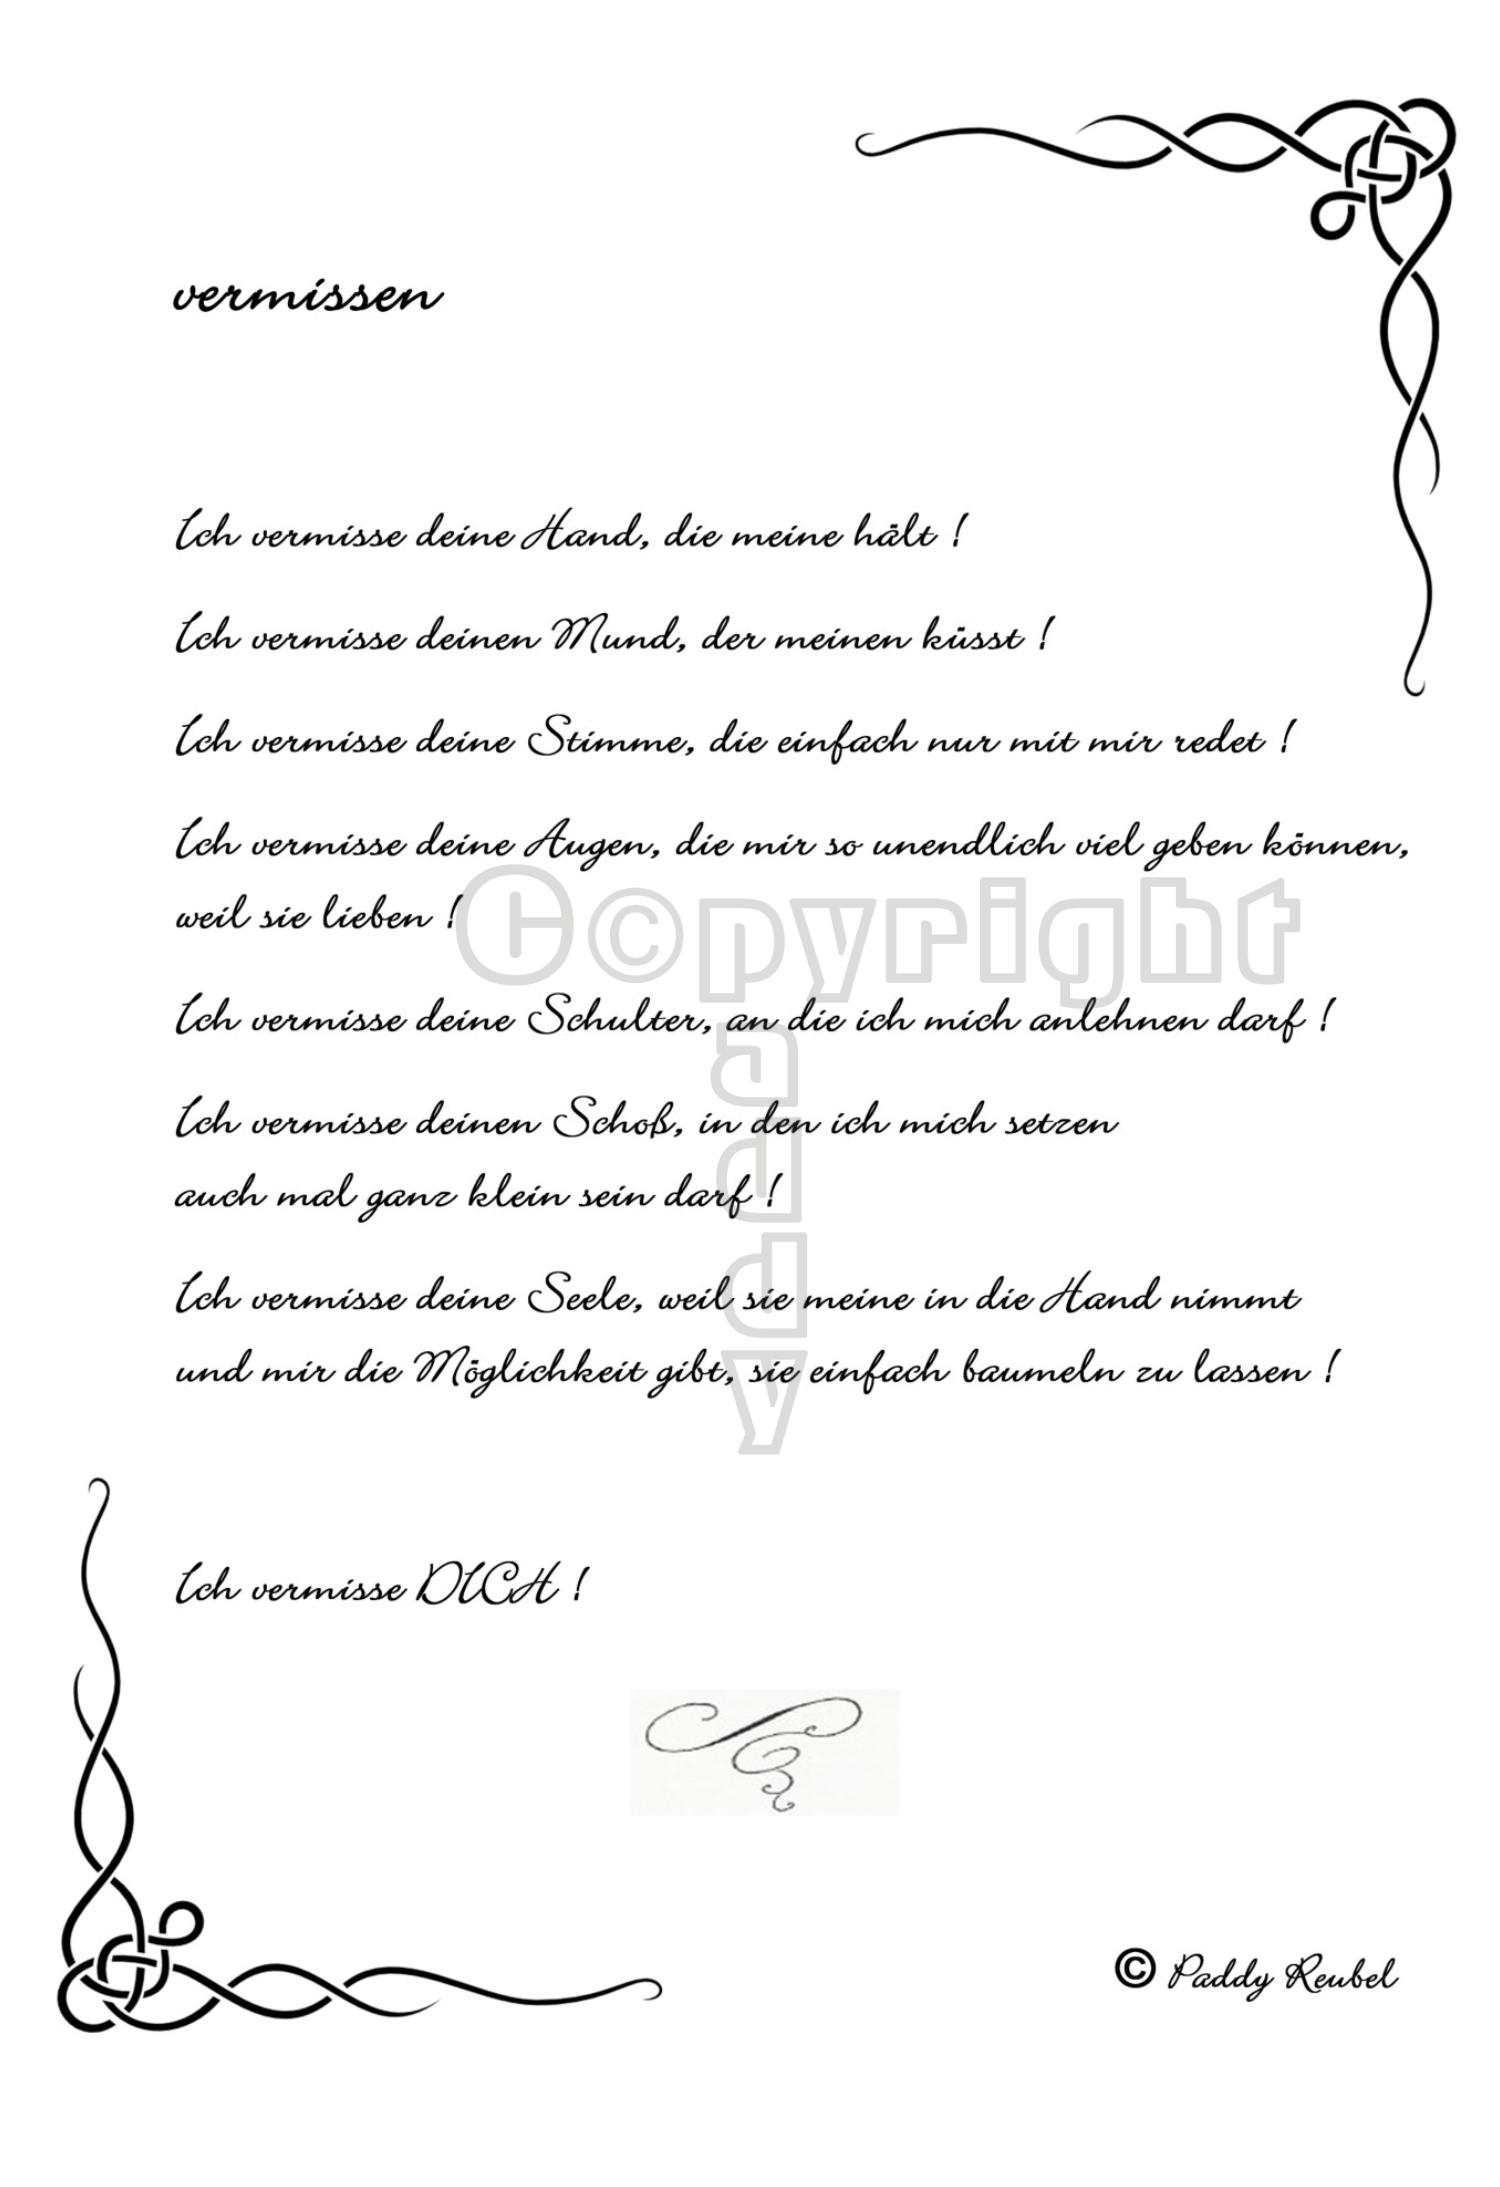 vermissen
Ich vermisse deine Hand, die meine hält !
Ich vermisse deinen Mund, der meinen küsst !
Ich vermisse deine Stimme, die einfach nur mit mir redet !
Ich vermisse deine Augen, die mir so unendlich viel geben können,
weil sie lieben !
C©pyright
Ich vermisse deine Schulter, an die ich mich anlehnen darf !
Ich vermisse deinen Schoß, in den ich mich setzen
auch mal ganz klein sein darf !
Ich vermisse deine Seele, weil sie meine in die Hand nimmt
und mir die Möglichkeit gibt, sie einfach baumeln zu lassen !
paddy
Ich vermisse DICH !
© Paddy Reubel